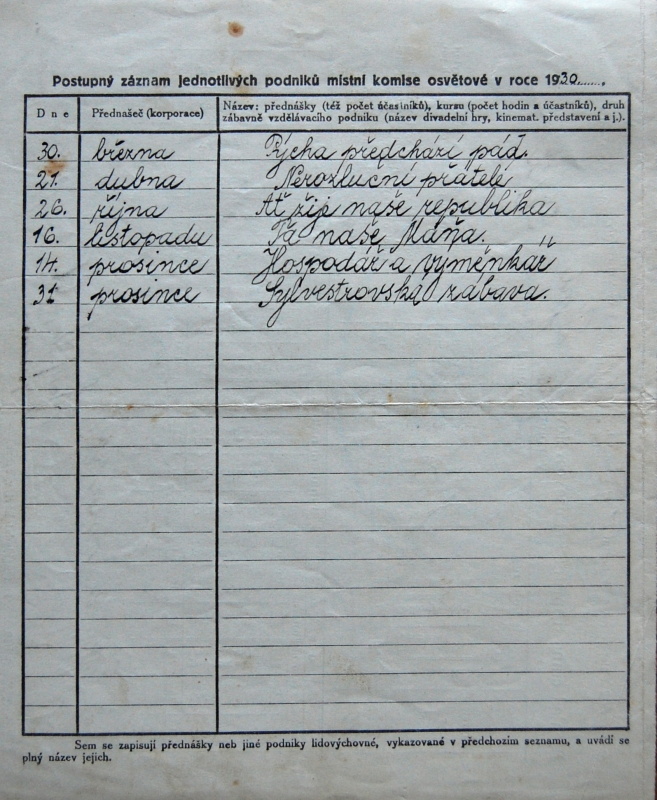 Postupný záznam jednotlivých podniků místní komise osvětové v roce 1930......
Dne
Přednašeč (korporace)
Název: přednášky (též počet účastníků), kursu (počet hodin a účastníků), druh
zábavně vzdělávacího podniku (název divadelní hry, kinemat. představení a j.).
30. března Pýcha předchází pád.
21. dubna Nerozluční přátelé
26. října Ať žije naše republika
16. listopadu Ta naše Máňa.
14. prosince Hospodář a výměnkář
31 prosince Sylvestrovská zábava.
Sem se zapisují přednášky neb jiné podniky lidovýchovné, vykazované v předchozím seznamu, a uvádí se
plný název jejich.